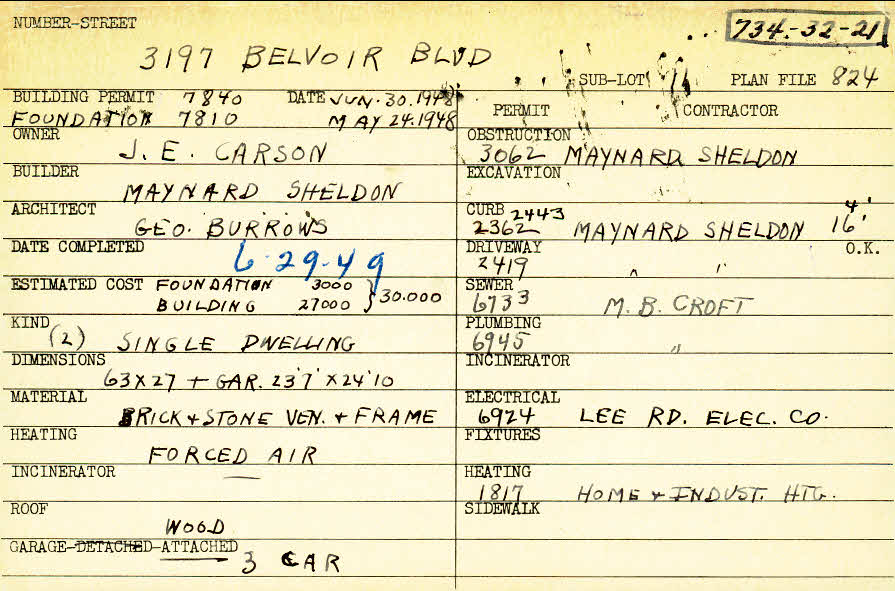 NUMBER-STREET
734-32-21
3197 BELVOIR BLVD
SUB-LOT PLAN FILE 824
BUILDING PERMIT 7840 DATE JUN. 30. 1948
FOUNDATION 7810 MAY 24. 1948
OWNER
J. E. CARSON
BUILDER
MAYNARD SHELDON
ARCHITECT
GEO. BURROWS
DATE COMPLETED
6-29-49
ESTIMATED COST FOUNDATION 3000
BUILDING 27000 } 30.000
KIND
(2) SINGLE DWELLING
DIMENSIONS
63 X 27 + GAR. 23'7" X 24'10
MATERIAL
BRICK + STONE VEN. + FRAME
HEATING
FORCED AIR
INCINERATOR
—
ROOF
WOOD
GARAGE-DETACHED-ATTACHED
3 CAR
PERMIT CONTRACTOR
OBSTRUCTION
3062 MAYNARD SHELDON
EXCAVATION
CURB 2443 4'
2362 MAYNARD SHELDON 16'
DRIVEWAY O.K.
2419 " "
SEWER
6733 M. B. CROFT
PLUMBING
6945 "
INCINERATOR
ELECTRICAL
6924 LEE RD. ELEC. CO.
FIXTURES
HEATING
1817 HOME + INDUST. HTG.
SIDEWALK